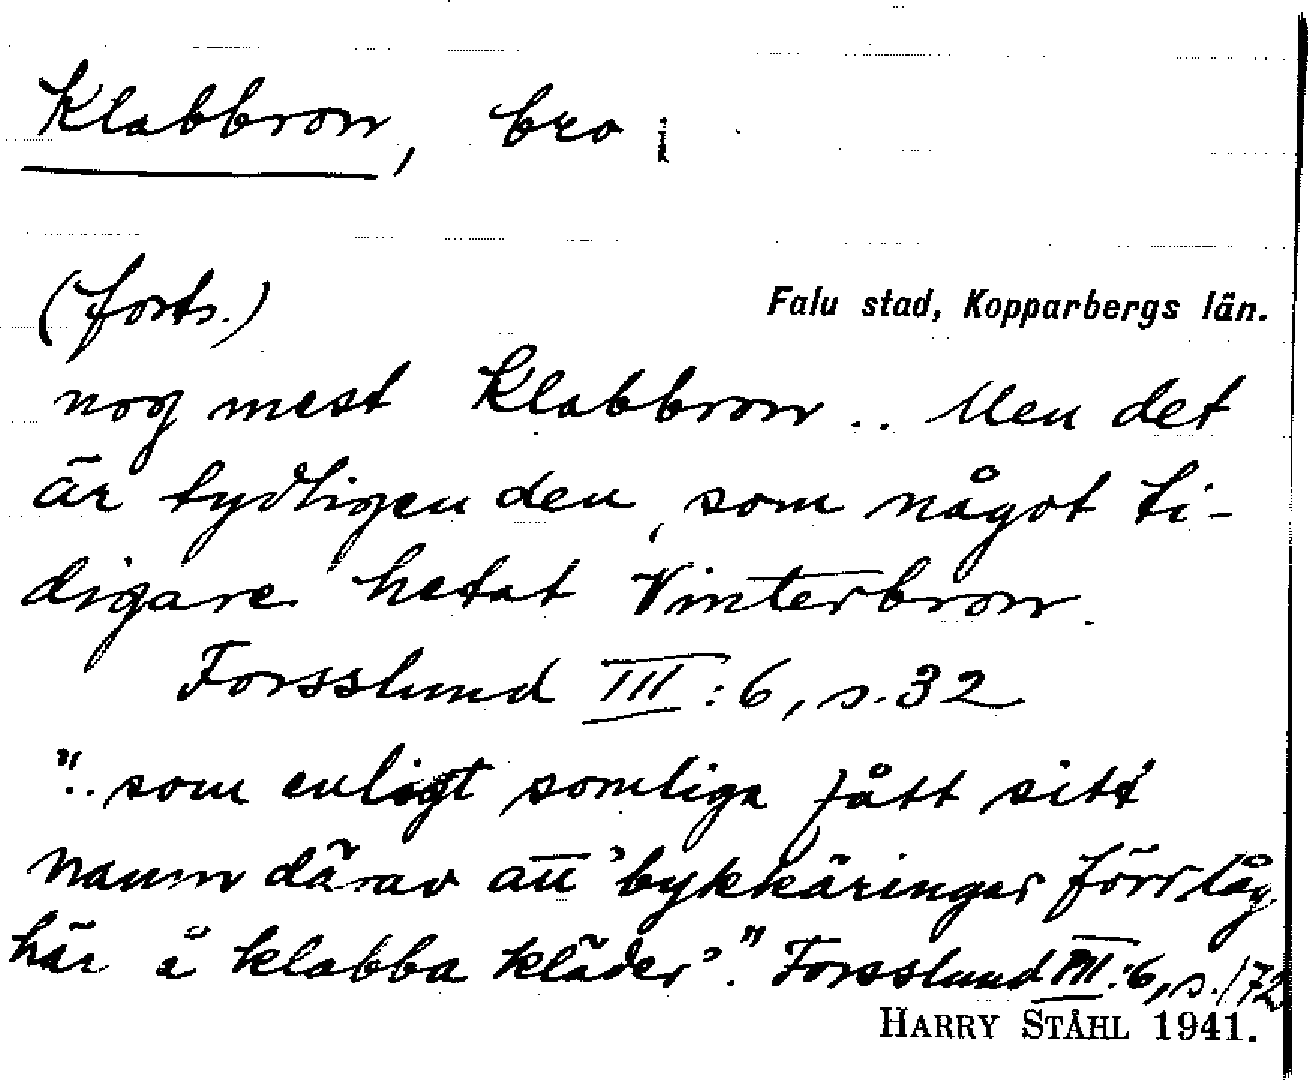 Klabbron, bro i
(forts.)
Falu stad, Kopparbergs län.
nog mest Klabbron .. Men det
är tydligen den, som något ti-
digare hetat Vinterbron.
Forsslund III:6, s. 32
".. som enligt somliga fått sitt
namn därav att 'bykkäringar förr låg
här å klabba kläder'." Forsslund III:6, s. 172
HARRY STÅHL 1941.